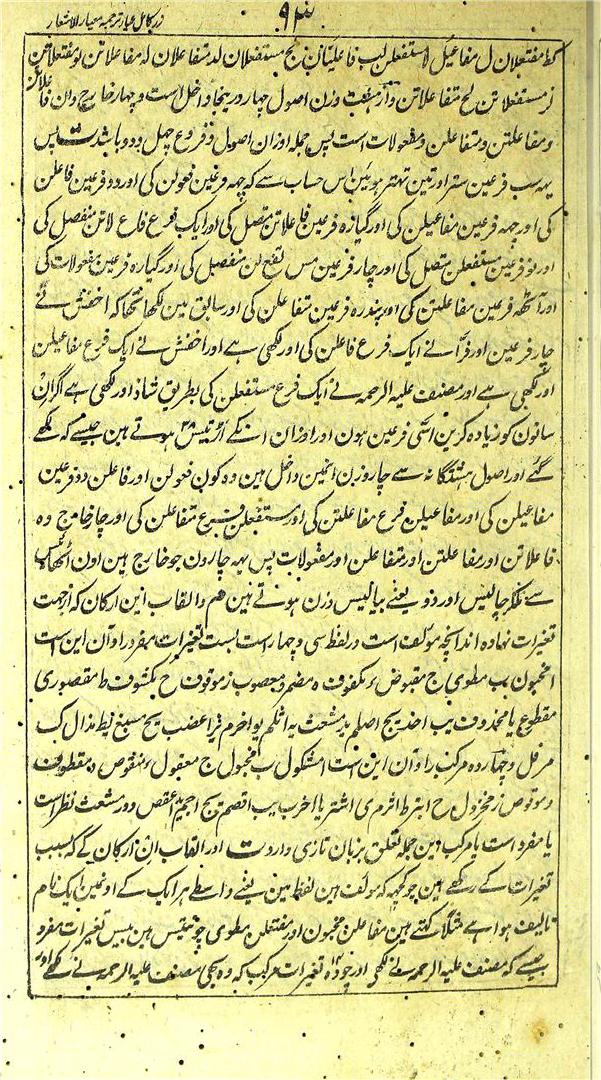 ۹۳
زر کامل عیار ترجمہ معیار الاشعار
کط مفتعلان ل مفاعیل لا مستفعلن لب فاعلیّان لج مستفعلان لد متفاعلان لہ مفاعلاتن لو مفتعلاتن
لز مستفعلاتن لح متفاعلاتن واز ہشت وزن اصول چہار درینجا داخل است و چہار خارج و ان فاعلاتن
و مفاعلتن و متفاعلن و مفعولات است پس جملہ اوزان اصول و فروع چہل و دو باشد ت پس
یہہ سب فرعین ستر اور تین تہتر ہوئین اس حساب سے کہ چہہ فرعین فعولن کی اور دو فرعین فاعلن
کی اور چہہ فرعین مفاعیلن کی اور گیارہ فرعین فاعلاتن متصل کی اور ایک فرع فاع لاتن منفصل کی
اور نو فرعین مستفعلن متصل کی اور چار فرعین مس تفع لن منفصل کی اور گیارہ فرعین مفعولات کی
اور آٹھہ فرعین مفاعلتن کی اور پندرہ فرعین متفاعلن کی اور سابق مین لکھا تھا کہ اخفش نے
چار فرعین اور فرّا نے ایک فرع فاعلن کی اور لکھی ہے اور اخفش نے ایک فرع مفاعیلن
اور لکھی ہے اور مصنف علیہ الرحمہ نے ایک فرع مستفعلن کی بطریق شاذ اور لکھی ہے اگر ان
ساتون کو زیادہ کرین اسّی فرعین ہون اور اوزان انکے اڑتیس ۳۸ ہوتے ہین جیسے کہ لکھے
گئے اور اصول ہشتگانہ سے چار وزن انہین داخل ہین وہ کون فعولن اور فاعلن دو فرعین
مفاعیلن کی اور مفاعیلن فرع مفاعلتن کی اور مستفعلن فرع متفاعلن کی اور چار خارج وہ
فاعلاتن اور مفاعلتن اور متفاعلن اور مفعولات پس یہہ چارون جو خارج ہین اون اٹھائیس
سے ملکر چالیس اور دو یعنے بیالیس وزن ہوتے ہین ھم و القاب این ارکان کہ از جہت
تغیرات نہادہ اند انچہ مؤلف است در لفظ سی و چہار است بست تغیرات مفرد را و آن این است
ا مخبون ب مطوی ج مقبوض د مکفوف ہ مضمر و معصوب ز موقوف ح مکشوف ط مقصور ی
مقطوع یا محذوف یب احذ یج اصلم ید مشعث یہ اثلم یو اخرم یز اعضب یح مسبغ یط مذال ک
مرفل و چہاردہ مرکب را و آن این است ا مشکول ب مخبول ج معقول د منقوص ہ مقطوف
و موقوص ز مخزول ح ابتر ط اثرم ی اشتر یا اخرب یب اقصم یج اجم ید اعقص و در مشعث نظر است
یا مفرد است یا مرکب و این جملہ تعلق بزبان تازی دارد ت اور القاب ان ارکان کے کہ بسبب
تغیرات کے رکھے ہین جو کچھہ کہ مؤلف ہین لفظ مین یعنے واسطے ہر ایک کے اونمین ایک نام
تالیف ہوا ہے مثلاً کہتے ہین مفاعلن مخبون اور مفتعلن مطوی چونتیس ہین بیس تغیرات مفرد
جیسے کہ مصنف علیہ الرحمہ نے لکھی اور چودہ تغیرات مرکب کہ وہ بھی مصنف علیہ الرحمہ نے لکھے اور